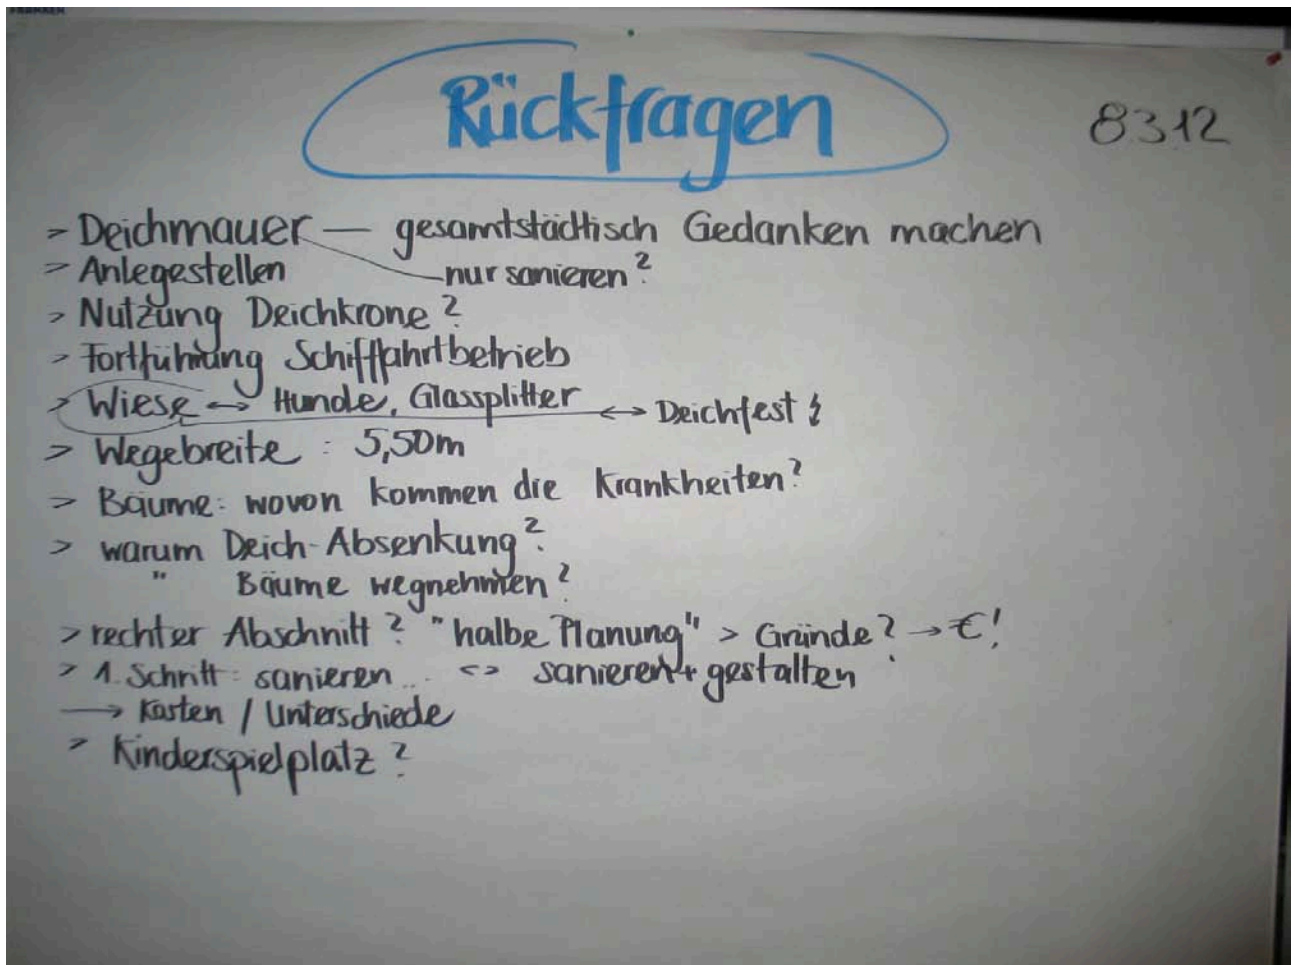 Rückfragen
8.3.12
> Deichmauer — gesamtstädtisch Gedanken machen
> Anlegestellen nur sanieren?
> Nutzung Deichkrone?
> Fortführung Schifffahrtbetrieb
> Wiese ↔ Hunde, Glassplitter ↔ Deichfest
> Wegebreite : 5,50m
> Bäume: wovon kommen die Krankheiten?
> warum Deich-Absenkung?
" Bäume wegnehmen?
> rechter Abschnitt? "halbe Planung" > Gründe? → €!
> 1. Schritt: sanieren.. <-> sanieren + gestalten
→ Kosten / Unterschiede
> Kinderspielplatz?